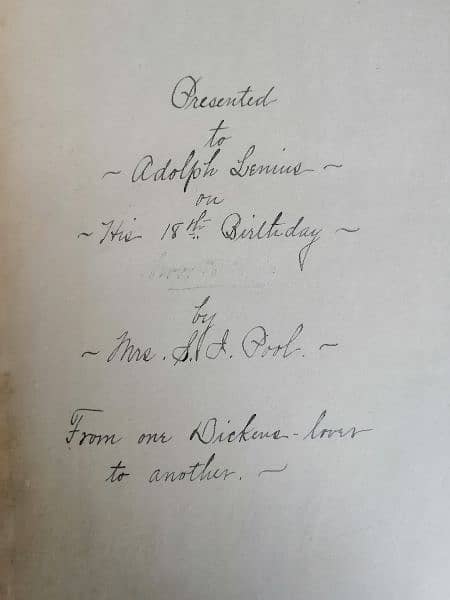 Presented
to
~ Adolph Lenius ~
on
~ His 18th Birthday ~
by
~ Mrs. S. J. Pool. ~
From one Dickens-lover
to another. ~